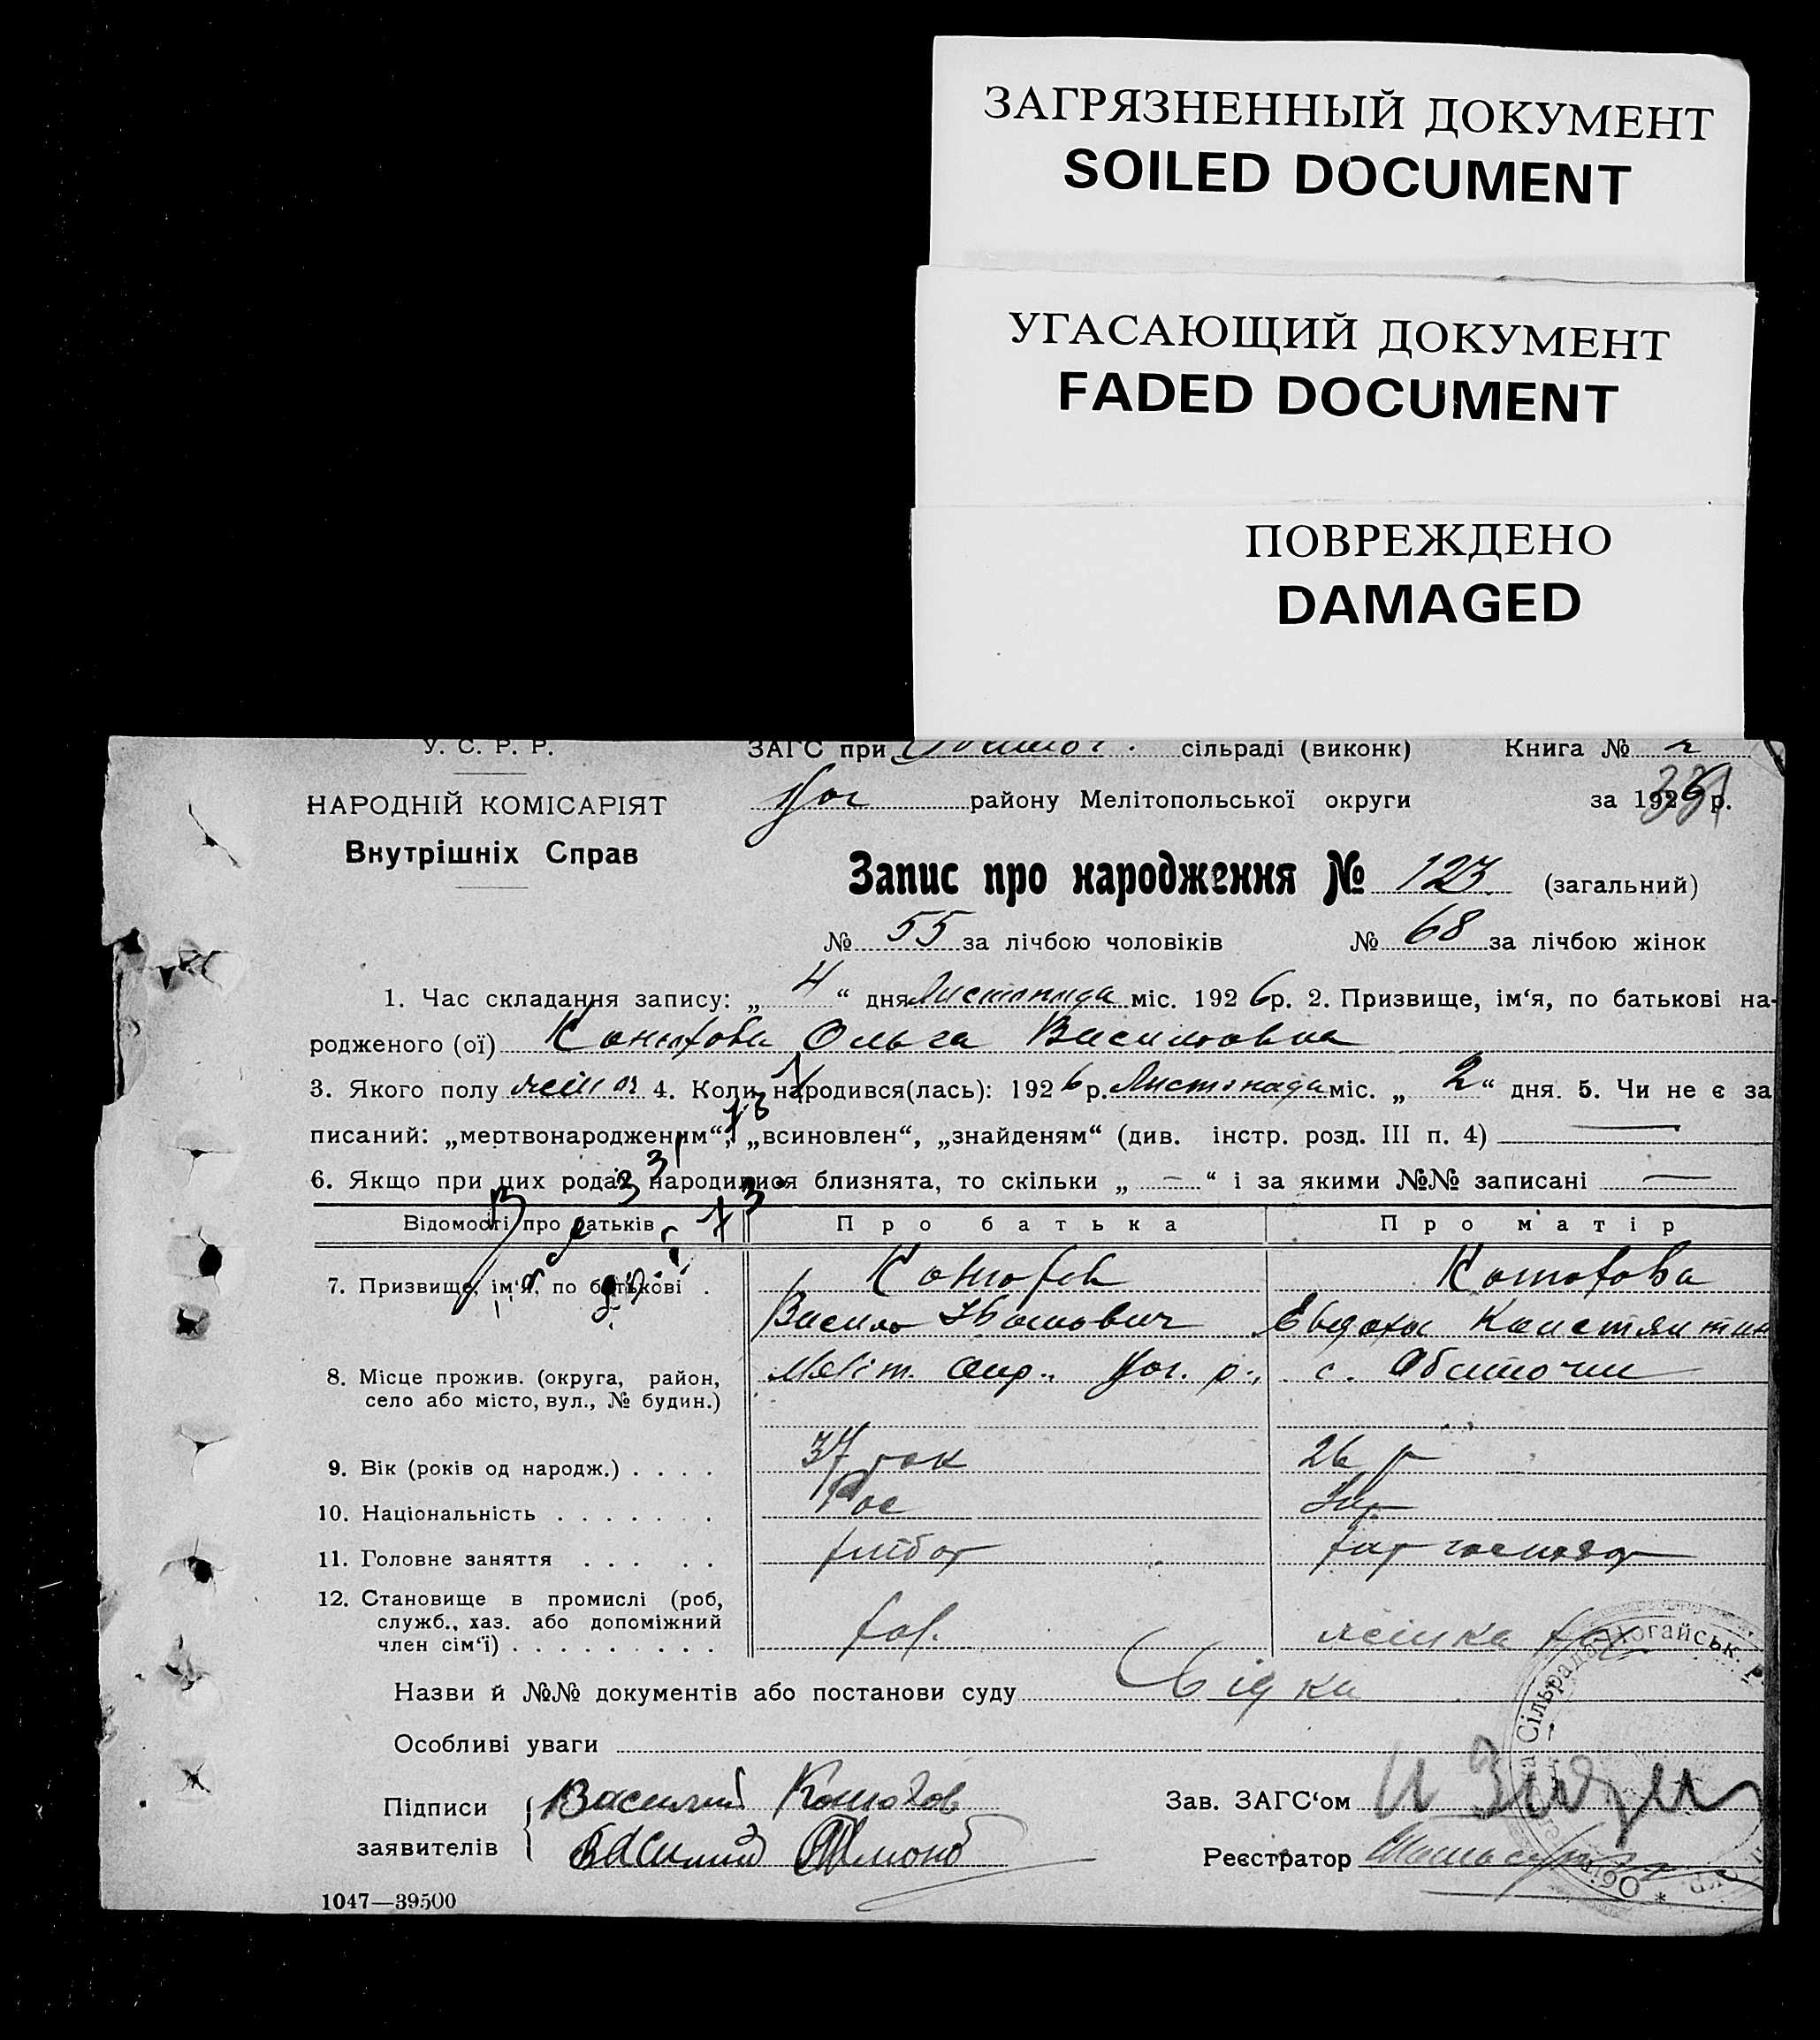 ЗАГРЯЗНЕННЫЙ ДОКУМЕНТ
SOILED DOCUMENT
УГАСАЮЩИЙ ДОКУМЕНТ
FADED DOCUMENT
ПОВРЕЖДЕНО
DAMAGED
У. С. Р. Р. ЗАГС при сільраді (виконк) Книга № 2
НАРОДНІЙ КОМІСАРІЯТ Ног району Мелітопольської округи за 1926 р.
Внутрішніх Справ
Запис про народження № 123 (загальний)
№ 55 за лічбою чоловіків № 68 за лічбою жінок
1. Час складання запису: „ 4 “ дня Листопада міс. 1926 р. 2. Призвище, ім‘я, по батькові на-
родженого (ої) Конюхова Ольга Василювна
3. Якого полу жін 4. Коли народився(лась): 1926 р. Листопада міс. „ 2 “ дня. 5. Чи не є за
писаний: „мертвонародженим“, „всиновлен“, „знайденям“ (див. інстр. розд. III п. 4) —
6. Якщо при цих родах народилися близнята, то скільки „ — “ і за якими №№ записані —
Відомості про батьків Про батька Про матір
7. Призвище, ім‘я, по батькові . Конюхов Конюхова
Василь Іванович Евдокія Констянтин
8. Місце прожив. (округа, район, Меліт. окр., Ног. р., с. Обиточни
село або місто, вул., № будин.)
9. Вік (років од народж.) . . . . 37 рок 26 р
10. Національність . . . . . . . Рос
11. Головне заняття . . . . . хлібор
12. Становище в промислі (роб,
служб., хаз. або допоміжний
член сім‘ї) . . . . . . . . . хаз. жінка хаз
Назви й №№ документів або постанови суду
Особливі уваги
Підписи Василий Конюхов Зав. ЗАГС‘ом
заявителів Василий Реєстратор
Сільрада Ногайськ. Р
1047—39500